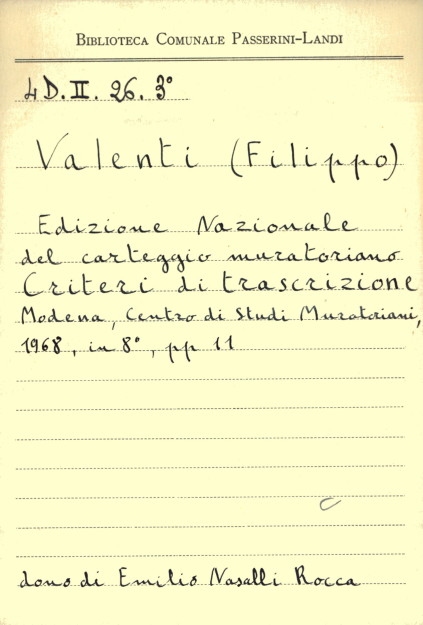 BIBLIOTECA COMUNALE PASSERINI-LANDI
4 D. II. 26. 3°
Valenti (Filippo)
Edizione Nazionale
del carteggio muratoriano
Criteri di trascrizione
Modena, Centro di Studi Muratoriani,
1968, in 8°, pp 11
dono di Emilio Nasalli Rocca